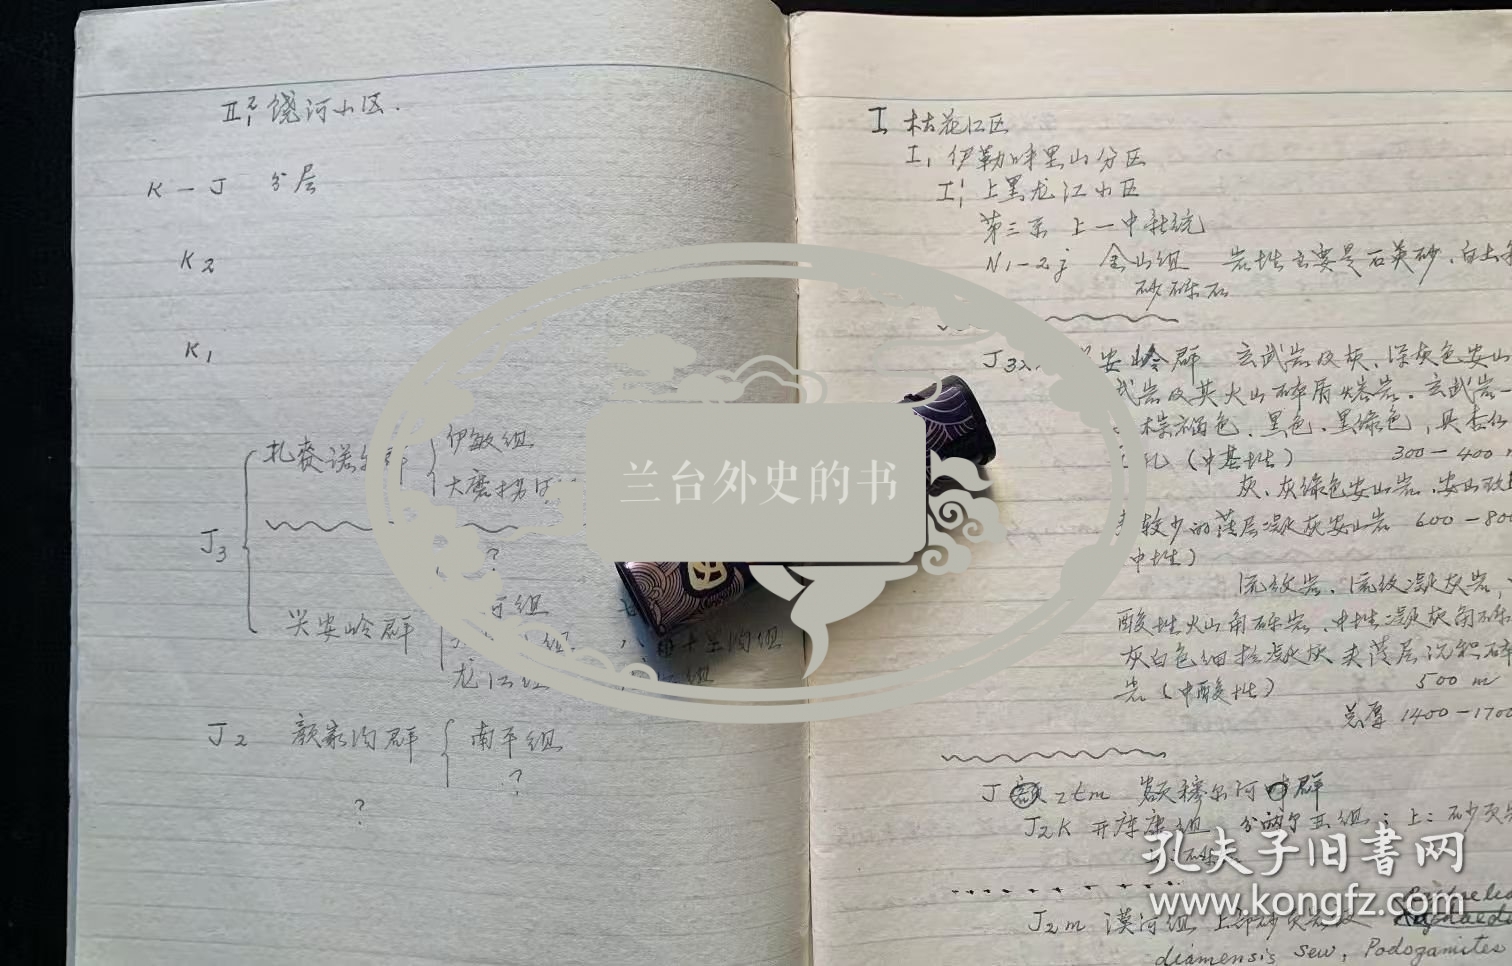 II²₁ 饶河小区.
K－J 分层
K2
K1
扎赉诺尔群 伊敏组
大磨拐河
J3
?
河组
兴安岭群
龙江组
J2 颜家沟群 南平组
?
?
I 桔花江区
I₁ 伊勒呼里山分区
I¹₁ 上黑龙江小区
第三系 上一中新统
N1-2j 金山组 岩性主要是石英砂、白土
砂砾石
J3 安岭群 玄武岩及灰、深灰色安山
武岩及其火山碎屑熔岩。玄武岩
棕褐色、黑色、黑绿色，具杏仁
孔（中基性） 300－400
灰、灰绿色安山岩、安山玢
较少的薄层凝灰安山岩 600－80
中性）
流纹岩、流纹凝灰岩、
酸性火山角砾岩、中性凝灰角砾
灰白色细粒凝灰 夹薄层沉积碎
岩（中酸性） 500 m
总厚 1400－1700
J 2tm 额穆尔河 群
J2K 开库康组 分两个亚组：上：砂页
J2m 漠河组 上部砂页岩
diamensis sew, Podozamites
兰台外史的书
孔夫子旧书网
www.kongfz.com